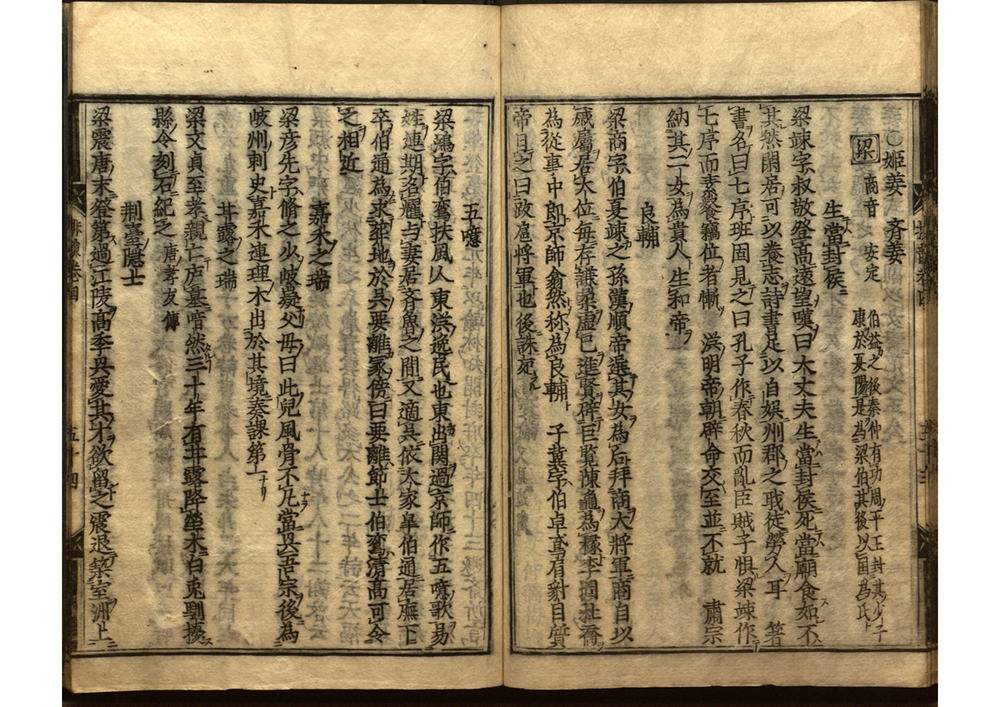 姬姜 齊姜
梁 商音 安定 伯益之後秦仲有功周平王封其少子
康於夏陽是為梁伯其後以国為氏
生當封侯
梁竦字叔敬登高遠望嘆曰大丈夫生當封侯死當廟食如不
其然閑居可以養志詩書足以自娯州郡之職徒勞人耳 著
書名曰七序班固見之曰孔子作春秋而亂臣賊子懼梁竦作
七序而素餐竊位者慚 漢明帝朝辟命交至並不就 肅宗
納其二女為貴人生和帝
良輔
梁商字伯夏竦之孫漢順帝選其女為后拜商大將軍商自以
戚屬居大位每存謙柔虚已進賢辟巨覧陳龜為掾李固周擧
為從事中郎京師翕然称為良輔 子冀字伯卓鳶肩豺目質
帝目之曰跋扈將軍也後誅死
五噫
梁鴻字伯鸞扶風人東漢逸民也東出関過京師作五噫歌易
姓連期名燿与妻居齊魯之間又適呉依大家皐伯通居廡下
卒伯通為求葬地於呉要離冢傍曰要離節士伯鸞清高可令
之相近
嘉禾之瑞
梁彦光字脩之少岐嶷父毋曰此兒風骨不凡當興吾宗後為
岐州刺史嘉禾連理木出於其境奏課第一
甘露之瑞
梁文貞至孝親亡庐墓喑然三十年有甘露降塋木白兎馴擾
縣令刻石紀之 唐孝友傳
荆臺隠士
梁震唐末登第過江陵高季興愛其才欲留之震退築室洲上
五十四